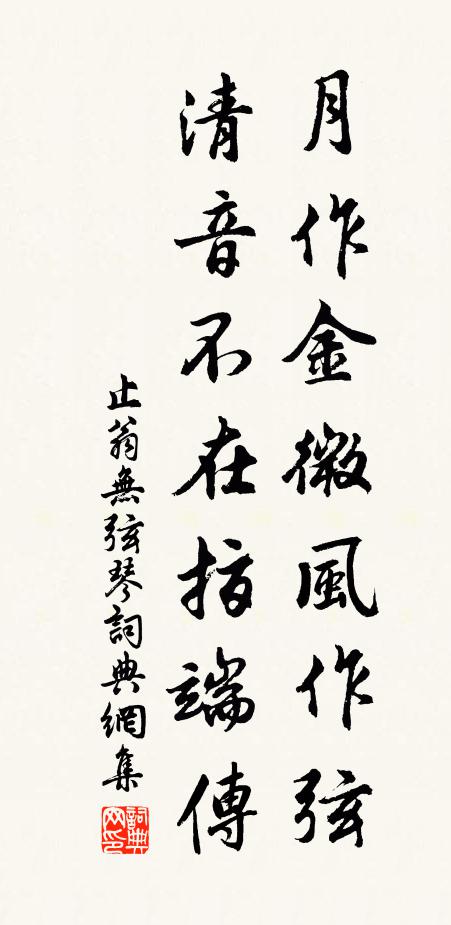 月作金微風作弦
清音不在指端傳
止翁無弦琴詞典網集
詞典
网印